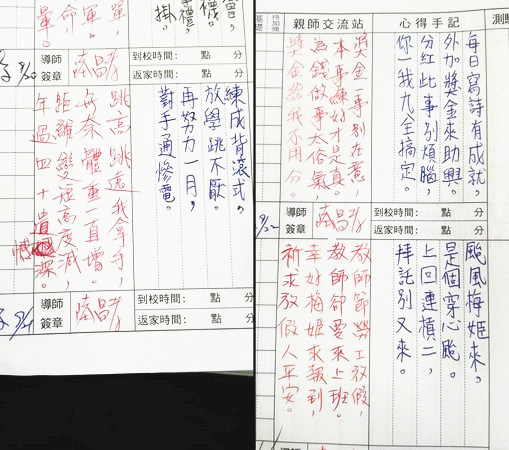 掛。
暈。
9/20
導師
簽章
到校時間： 點 分
返家時間： 點 分
練成背滾式，
放學跳不厭。
再努力一月，
對手通慘電。
跳高跳遠我拿手，
無奈體重一直增。
距離變短高度減，
年過四十遺憾深。
9/21
導師
簽章
到校時間： 點 分
返家時間： 點 分
基礎
待加強
親師交流站
心得手記
測驗
每日寫詩有成就，
外加獎金來助興。
分紅此事別煩腦，
你一我九全搞定。
獎金一事別在意，
本事練好才是真。
為錢做事太俗氣，
獎金給我不用分。
9/22
導師
簽章
到校時間： 點 分
返家時間： 點 分
颱風梅姬來，
是個穿心颱。
上回連橫二，
拜託別又來。
教師節勞工放假，
教師卻要來上班。
幸好梅姬來報到，
祈求放假人平安。